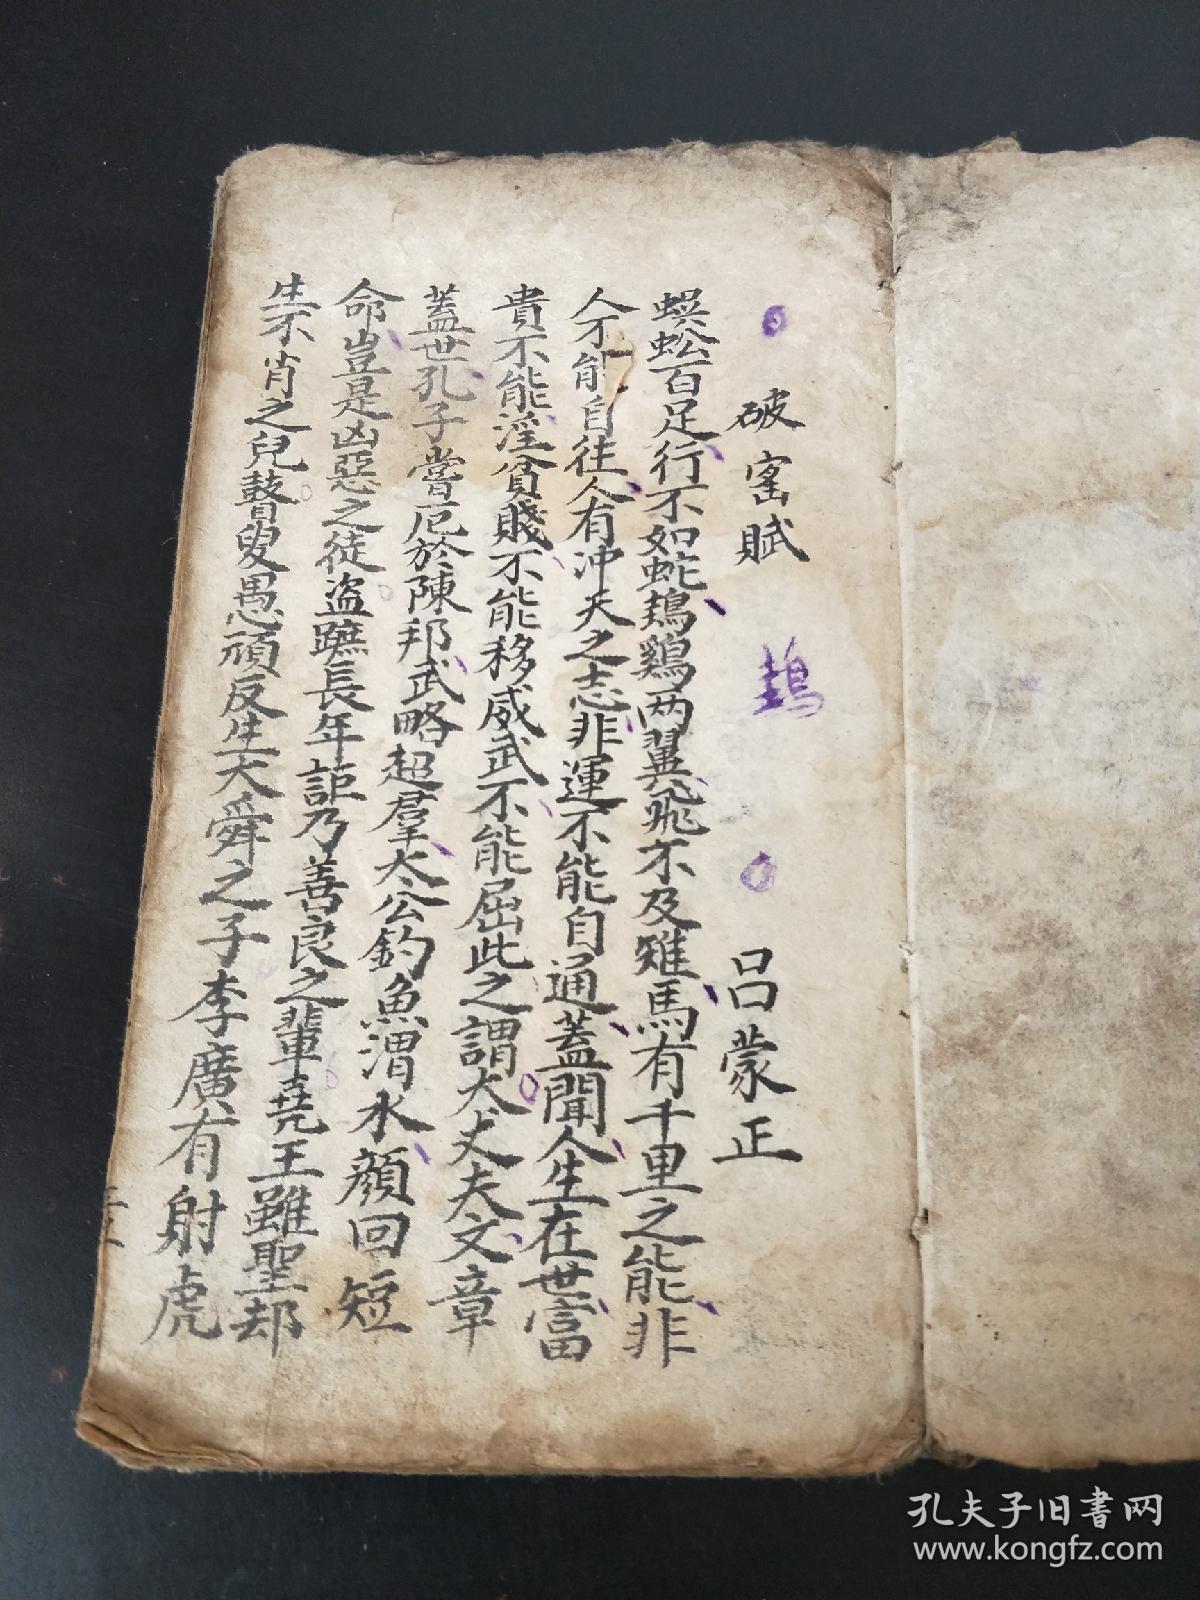 破窰賦 呂蒙正
鵱
蜈蚣百足行不如蛇鵱鷄两翼飛不及雉馬有千里之能非
人不能自往人有冲天之志非運不能自通蓋聞人生在世富
貴不能淫貧賤不能移威武不能屈此之謂大丈夫文章
蓋世孔子嘗厄於陳邦武略超羣太公釣魚渭水顏回短
命豈是凶惡之徒盗蹠長年詎乃善良之輩堯王雖聖却
生不肖之兒瞽叟愚頑反生大舜之子李廣有射虎
孔夫子旧书网
www.kongfz.com